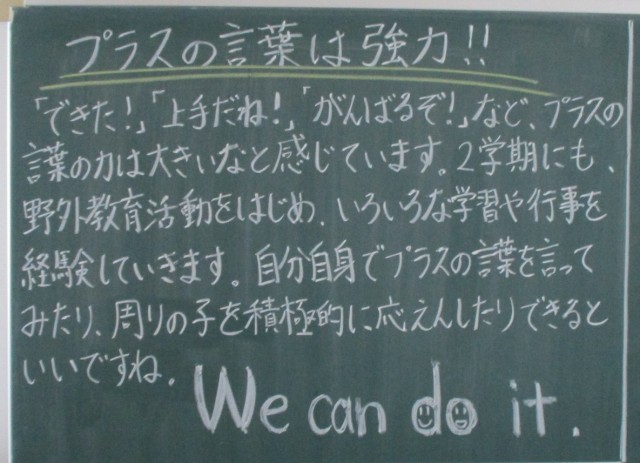 プラスの言葉は強力!!
「できた!」「上手だね!」「がんばるぞ!」など、プラスの
言葉の力は大きいなと感じています。2学期にも、
野外教育活動をはじめ、いろいろな学習や行事を
経験していきます。自分自身でプラスの言葉を言って
みたり、周りの子を積極的に応えんしたりできると
いいですね。
We can do it.